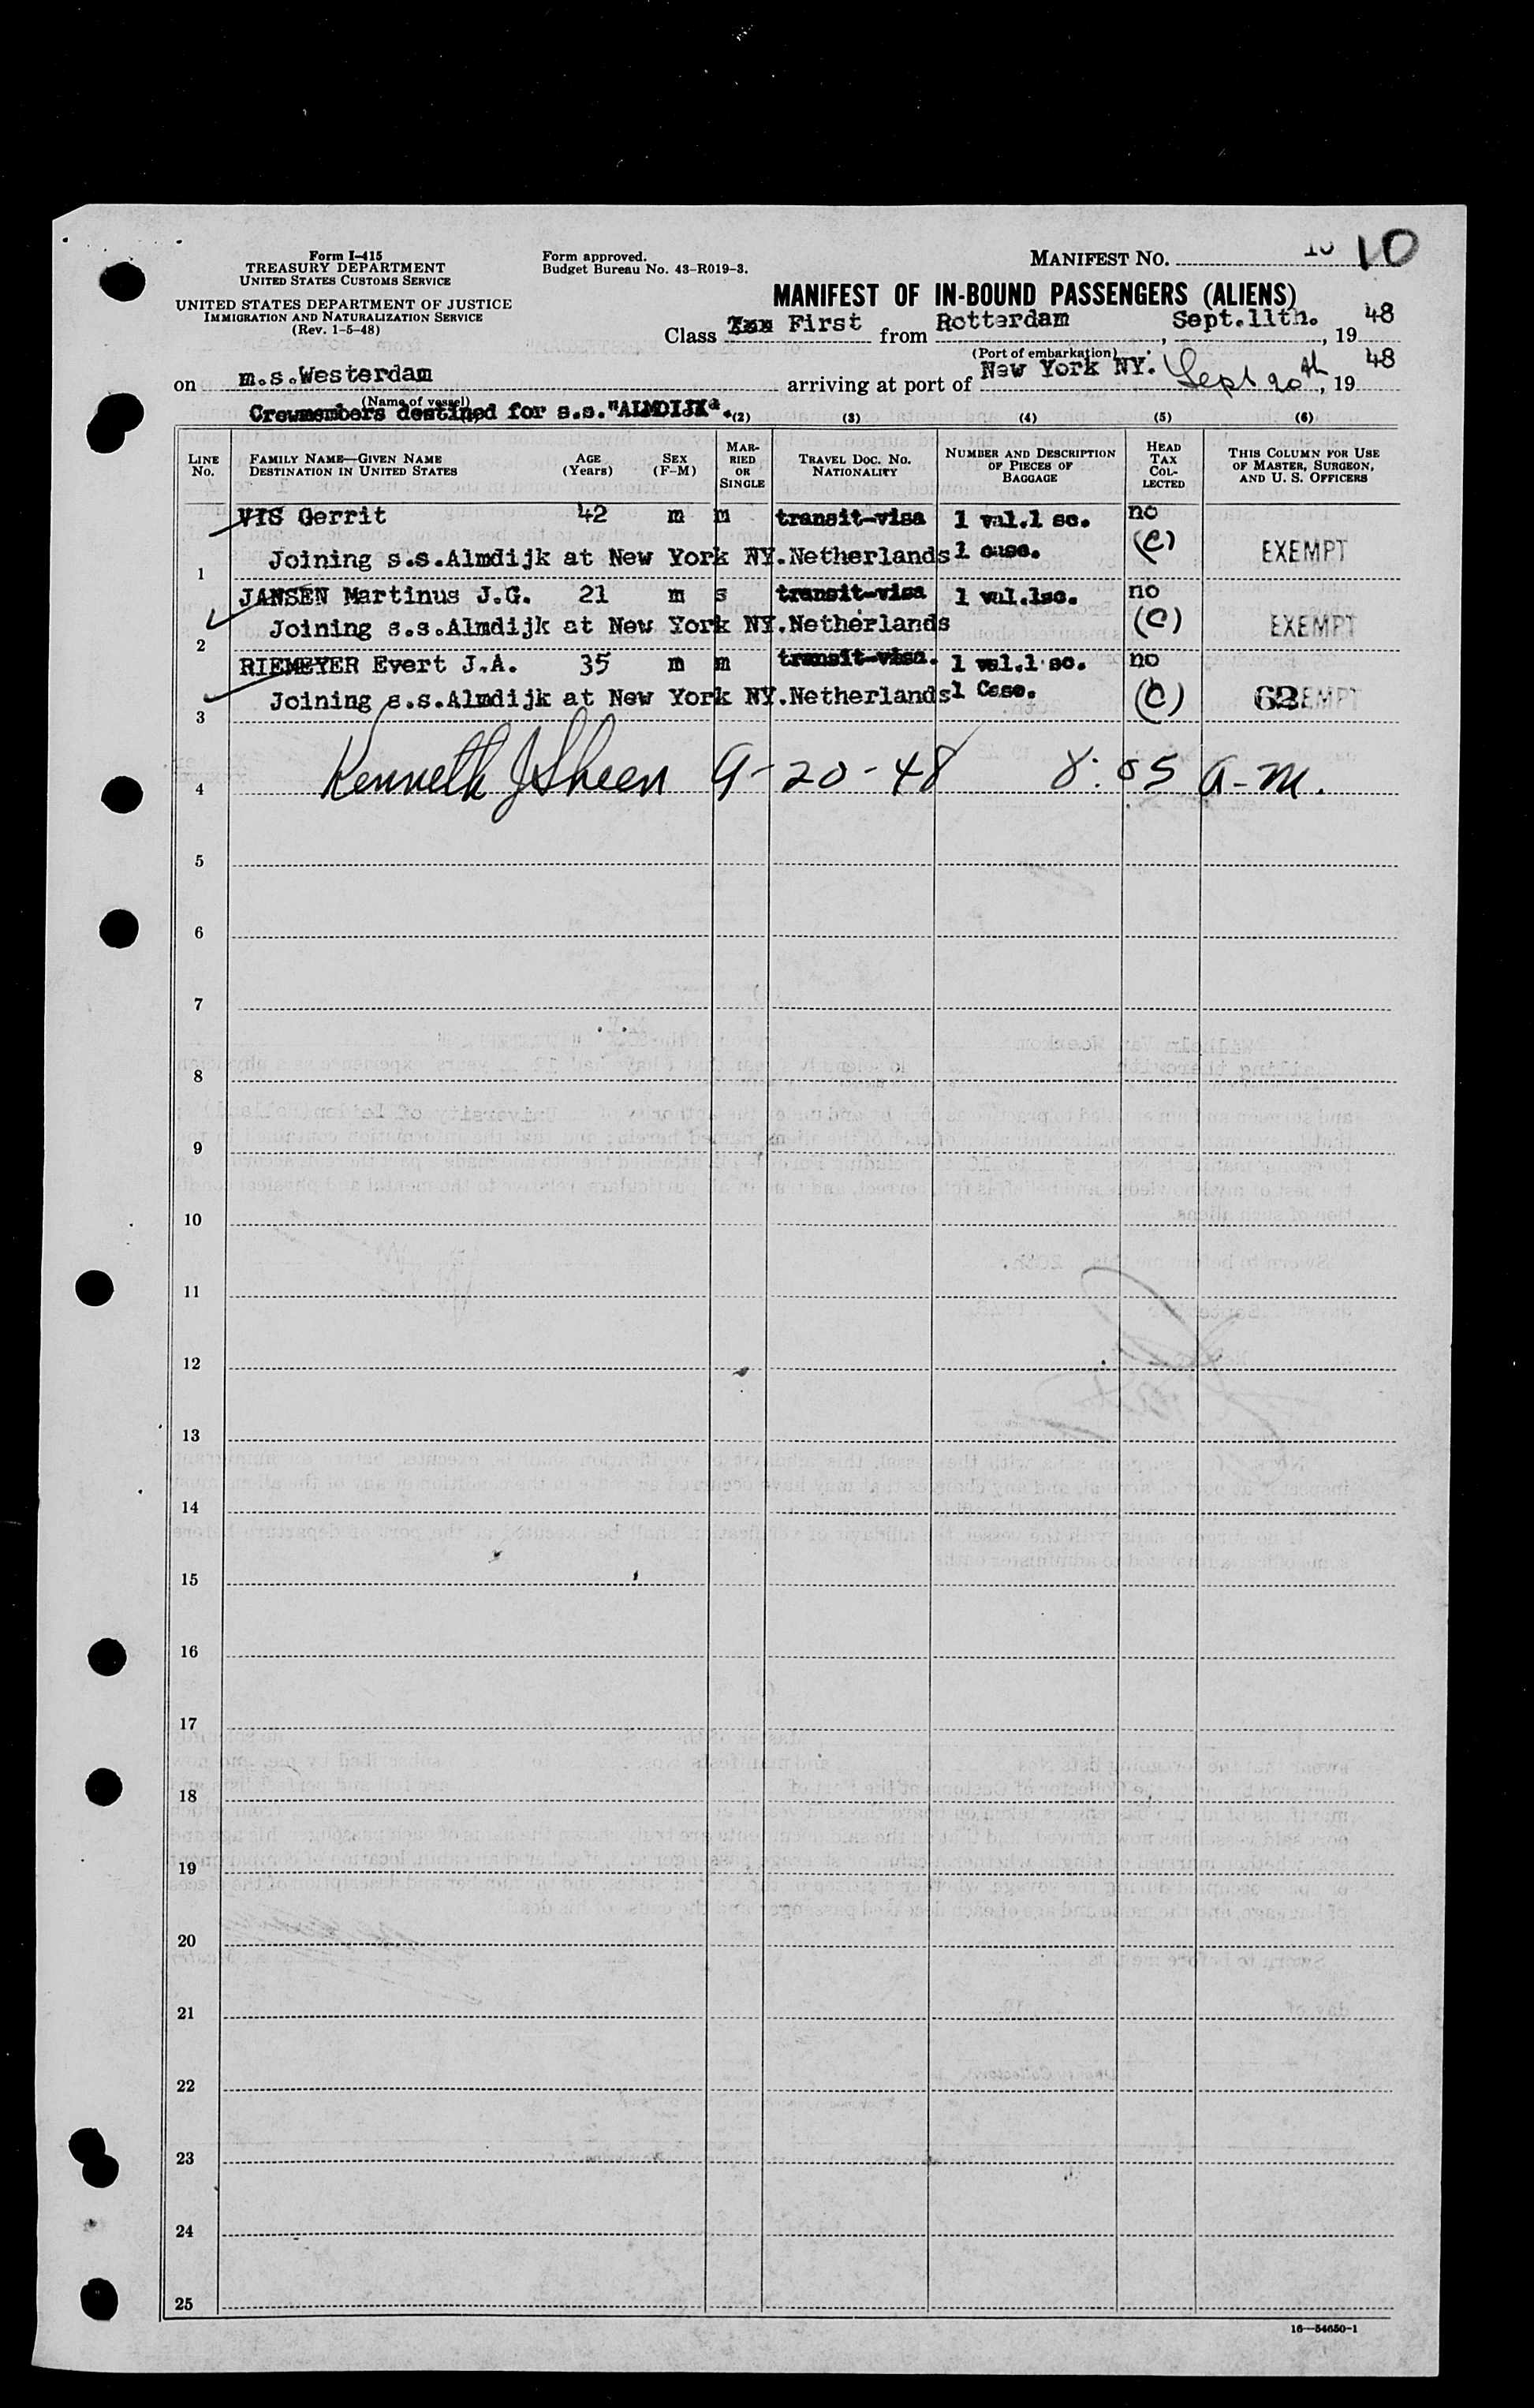 Form I-415
TREASURY DEPARTMENT
UNITED STATES CUSTOMS SERVICE
UNITED STATES DEPARTMENT OF JUSTICE
IMMIGRATION AND NATURALIZATION SERVICE
(Rev. 1-5-48)
Form approved.
Budget Bureau No. 43-R019-3.
MANIFEST NO. 10 10
MANIFEST OF IN-BOUND PASSENGERS (ALIENS)
Class First from Rotterdam, Sept.11th., 19 48
(Port of embarkation)
on m.s.Westerdam arriving at port of New York NY. Sept 20th, 19 48
(Name of vessel)
Crewmembers destined for s.s."ALMDIJK".
(2) (3) (4) (5) (6)
LINE No. FAMILY NAME—GIVEN NAME DESTINATION IN UNITED STATES AGE (Years) SEX (F-M) MARRIED OR SINGLE TRAVEL DOC. NO. NATIONALITY NUMBER AND DESCRIPTION OF PIECES OF BAGGAGE HEAD TAX COLLECTED THIS COLUMN FOR USE OF MASTER, SURGEON, AND U. S. OFFICERS
VIS Gerrit 42 m m transit-visa 1 val.1 sc. no
1 Joining s.s.Almdijk at New York NY.Netherlands 1 case. (C) EXEMPT
JANSEN Martinus J.G. 21 m s transit-visa 1 val.1sc. no
2 Joining s.s.Almdijk at New York NY.Netherlands (C) EXEMPT
RIEMEYER Evert J.A. 35 m m transit-visa. 1 val.1 sc. no
3 Joining s.s.Almdijk at New York NY.Netherlands 1 Case. (C) EXEMPT
4 Kenneth J Sheen 9-20-48 8:05 a-m.
5
6
7
8
9
10
11
12
13
14
15
16
17
18
19
20
21
22
23
24
25
16—54650-1